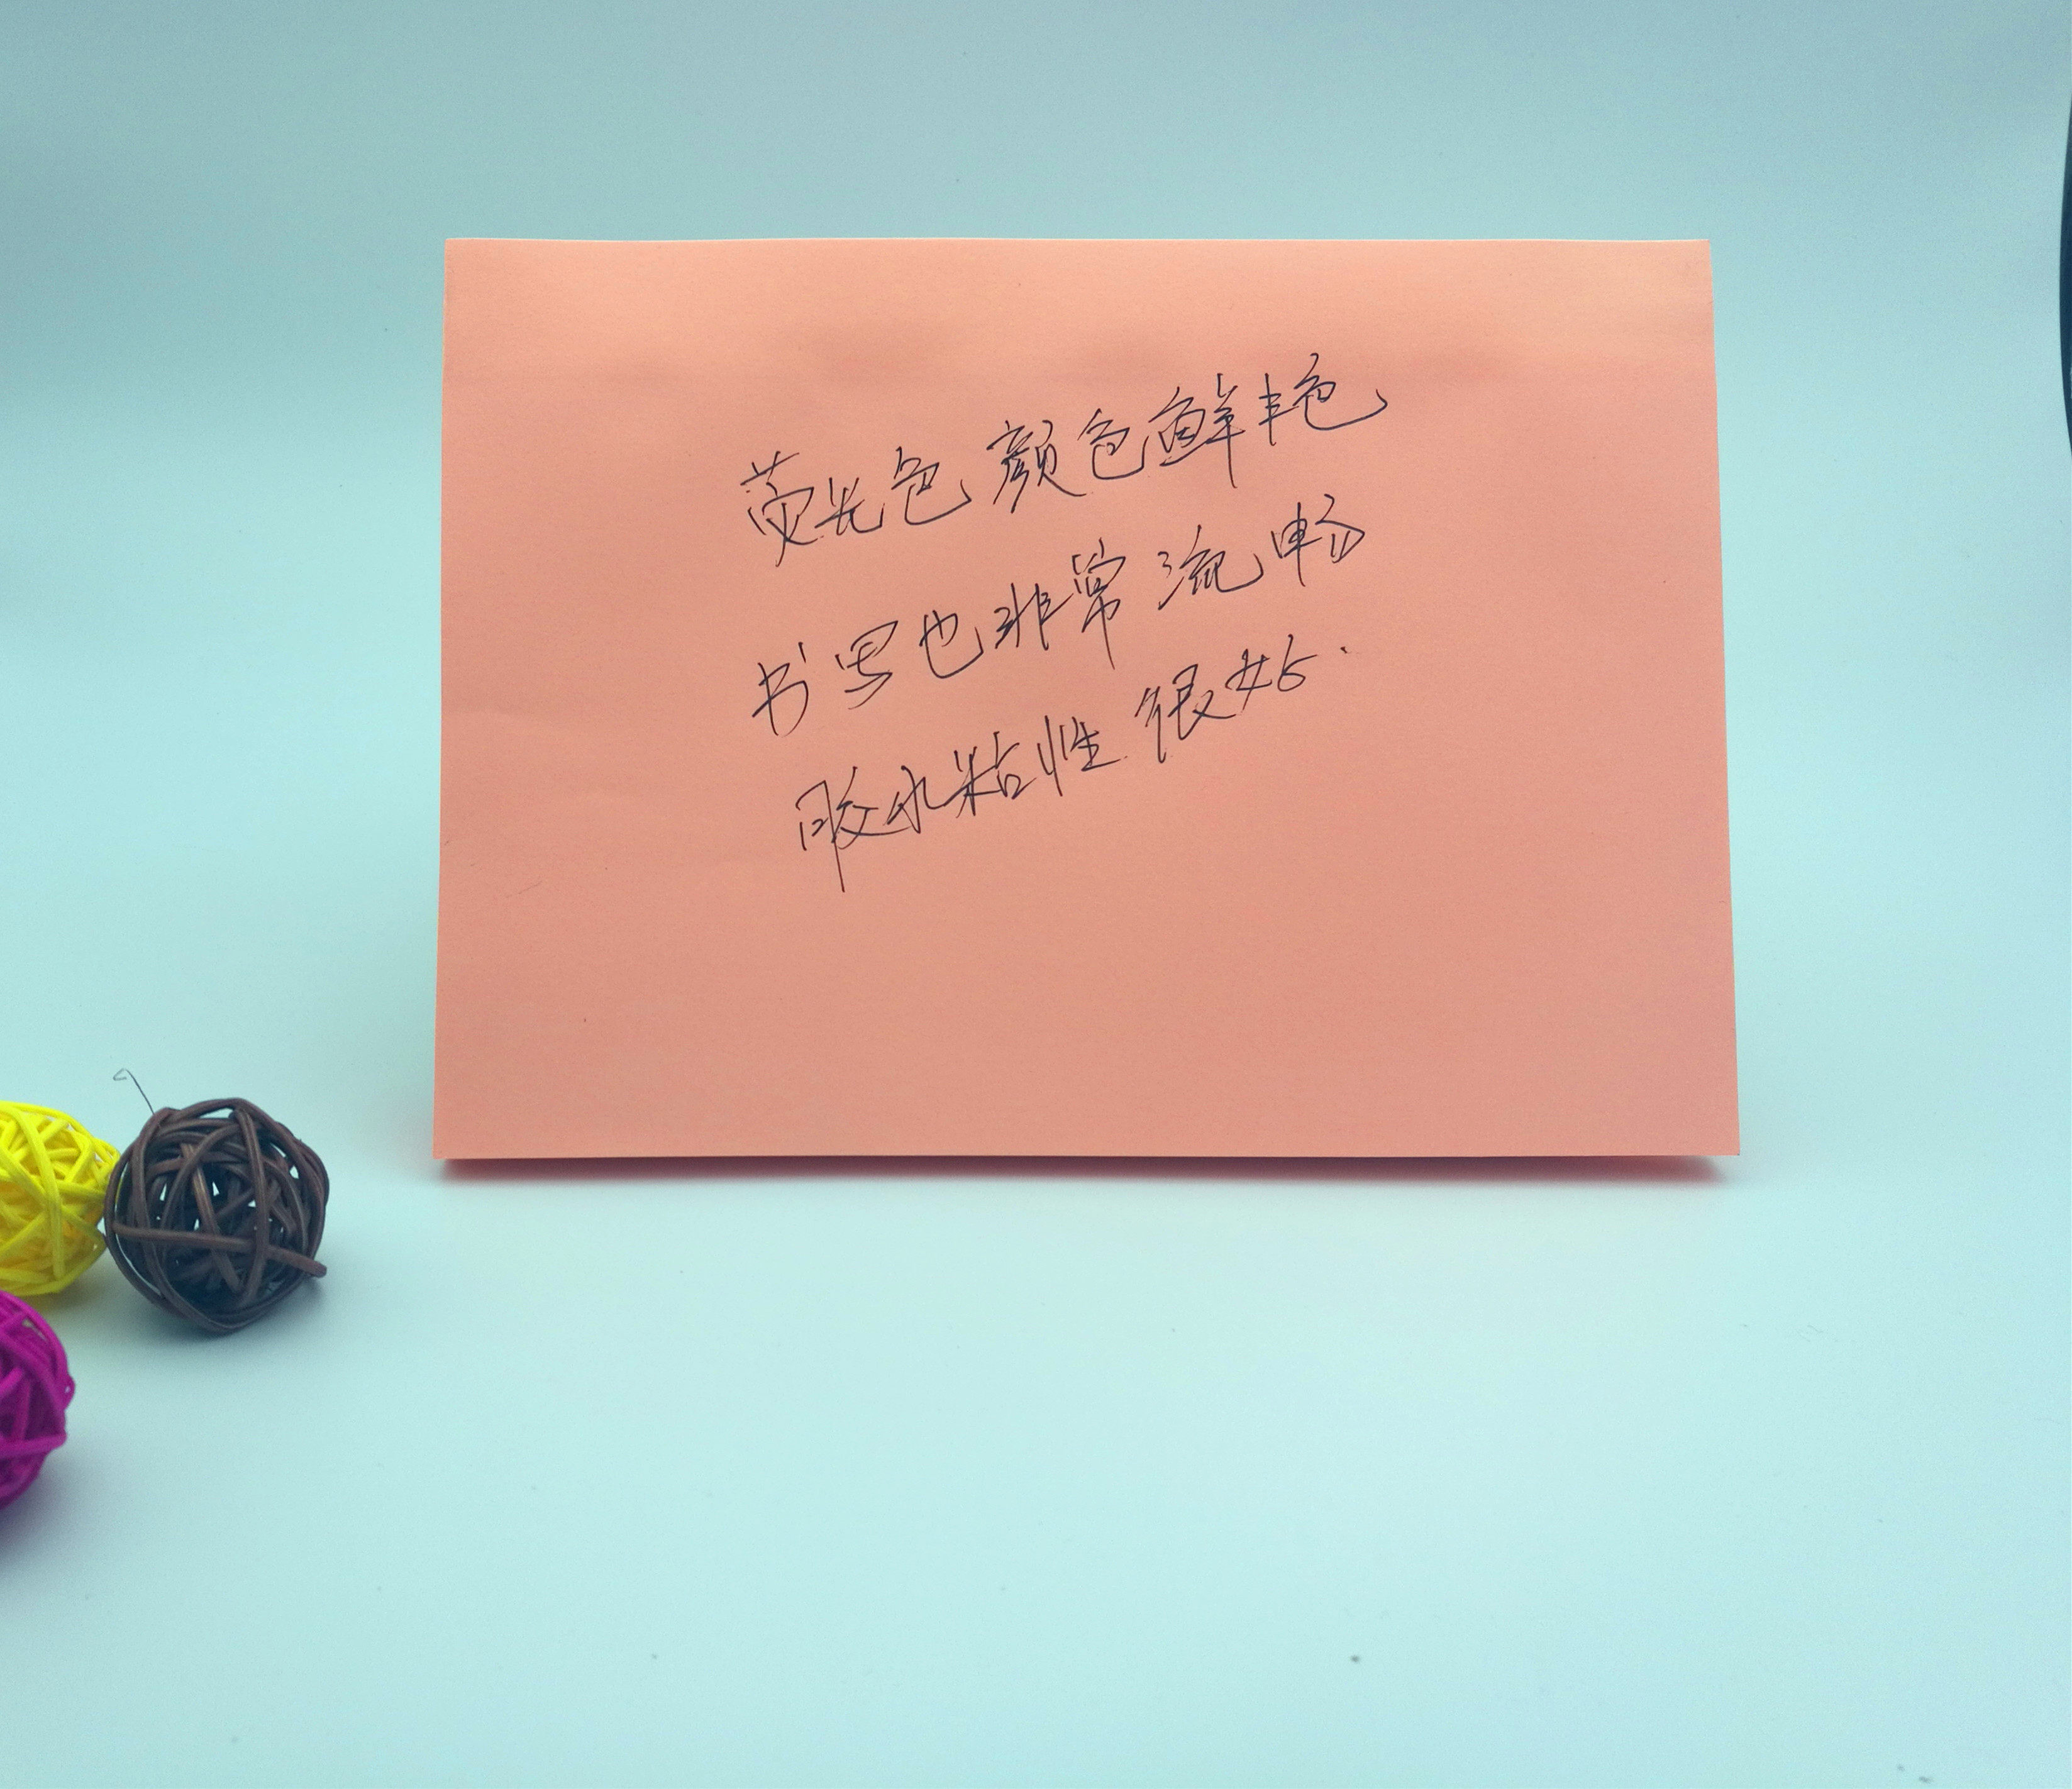 荧光色 颜色鲜艳
书写也非常流畅
胶水粘性很好.